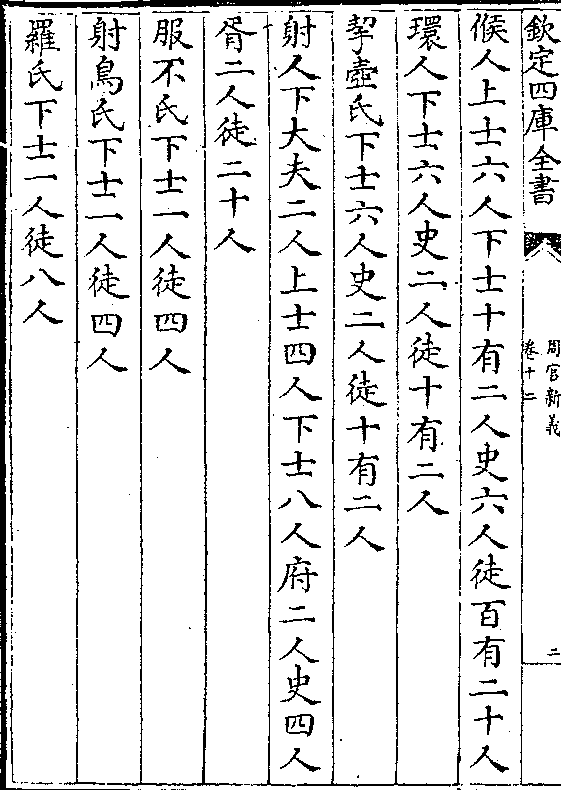 欽定四庫全書
周官新義
卷十二
二
候人上士六人下士十有二人史六人徒百有二十人
環人下士六人史二人徒十有二人
挈壺氏下士六人史二人徒十有二人
射人下大夫二人上士四人下士八人府二人史四人
胥二人徒二十人
服不氏下士一人徒四人
射鳥氏下士一人徒四人
羅氏下士一人徒八人